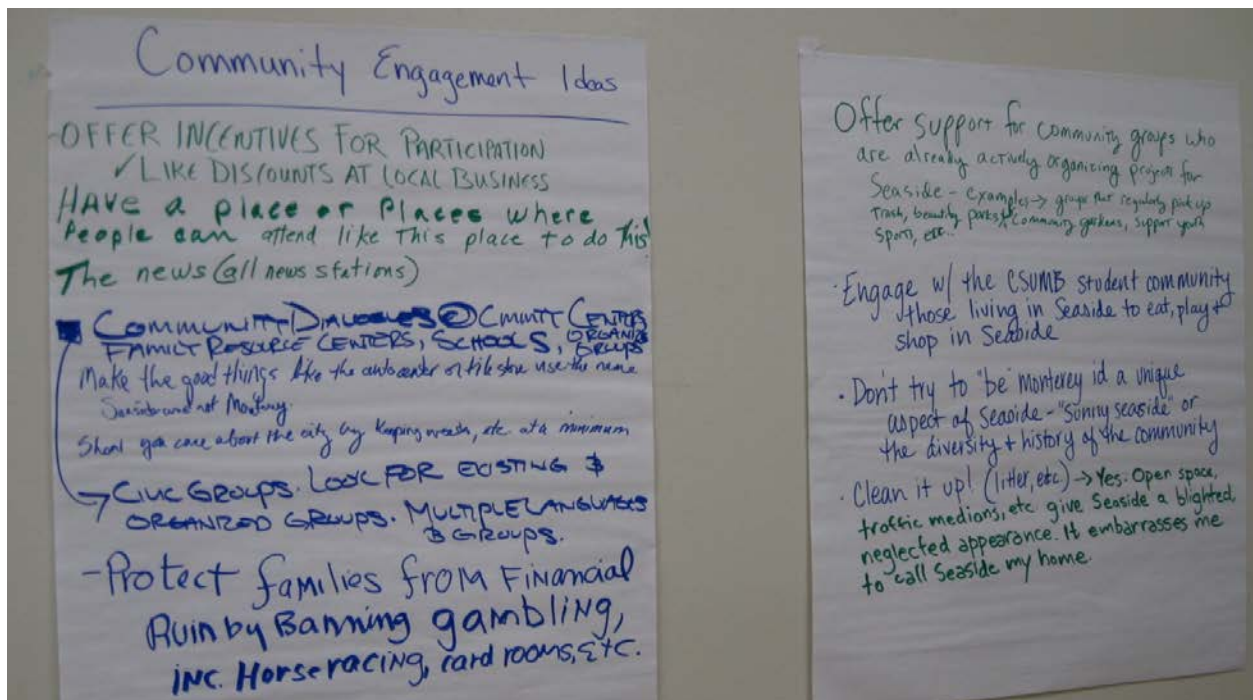 Community Engagement Ideas
-OFFER INCENTIVES FOR PARTICIPATION
✓ LIKE DISCOUNTS AT LOCAL BUSINESS
HAVE a place or Places where
People can attend like This place to do this!
The news (all news stations)
COMMUNITY DIALOGUES @ CMMTY CENTERS
FAMILY RESOURCE CENTERS, SCHOOLS, ORGANIZED GROUPS
Make the good things like the autocenter or tile store use the name
Seaside and not Monterey.
Show you care about the city by keeping , etc at a minimum
→ CIVIC GROUPS. LOOK FOR EXISTING &
ORGANIZED GROUPS. MULTIPLE LANGUAGES
& GROUPS.
-Protect families from Financial
Ruin by Banning gambling,
inc. Horseracing, card rooms, etc.
Offer support for community groups who
are already actively organizing projects for
Seaside - examples → groups that regularly pick up
trash, beautify parks, community gardens, support youth
sports, etc...
· Engage w/ the CSUMB student community
those living in Seaside to eat, play +
shop in Seaside
· Don't try to "be" Monterey id a unique
aspect of Seaside - "sunny seaside" or
the diversity + history of the community
· Clean it up! (litter, etc) → Yes. Open space,
traffic medians, etc give Seaside a blighted,
neglected appearance. It embarrasses me
to call Seaside my home.